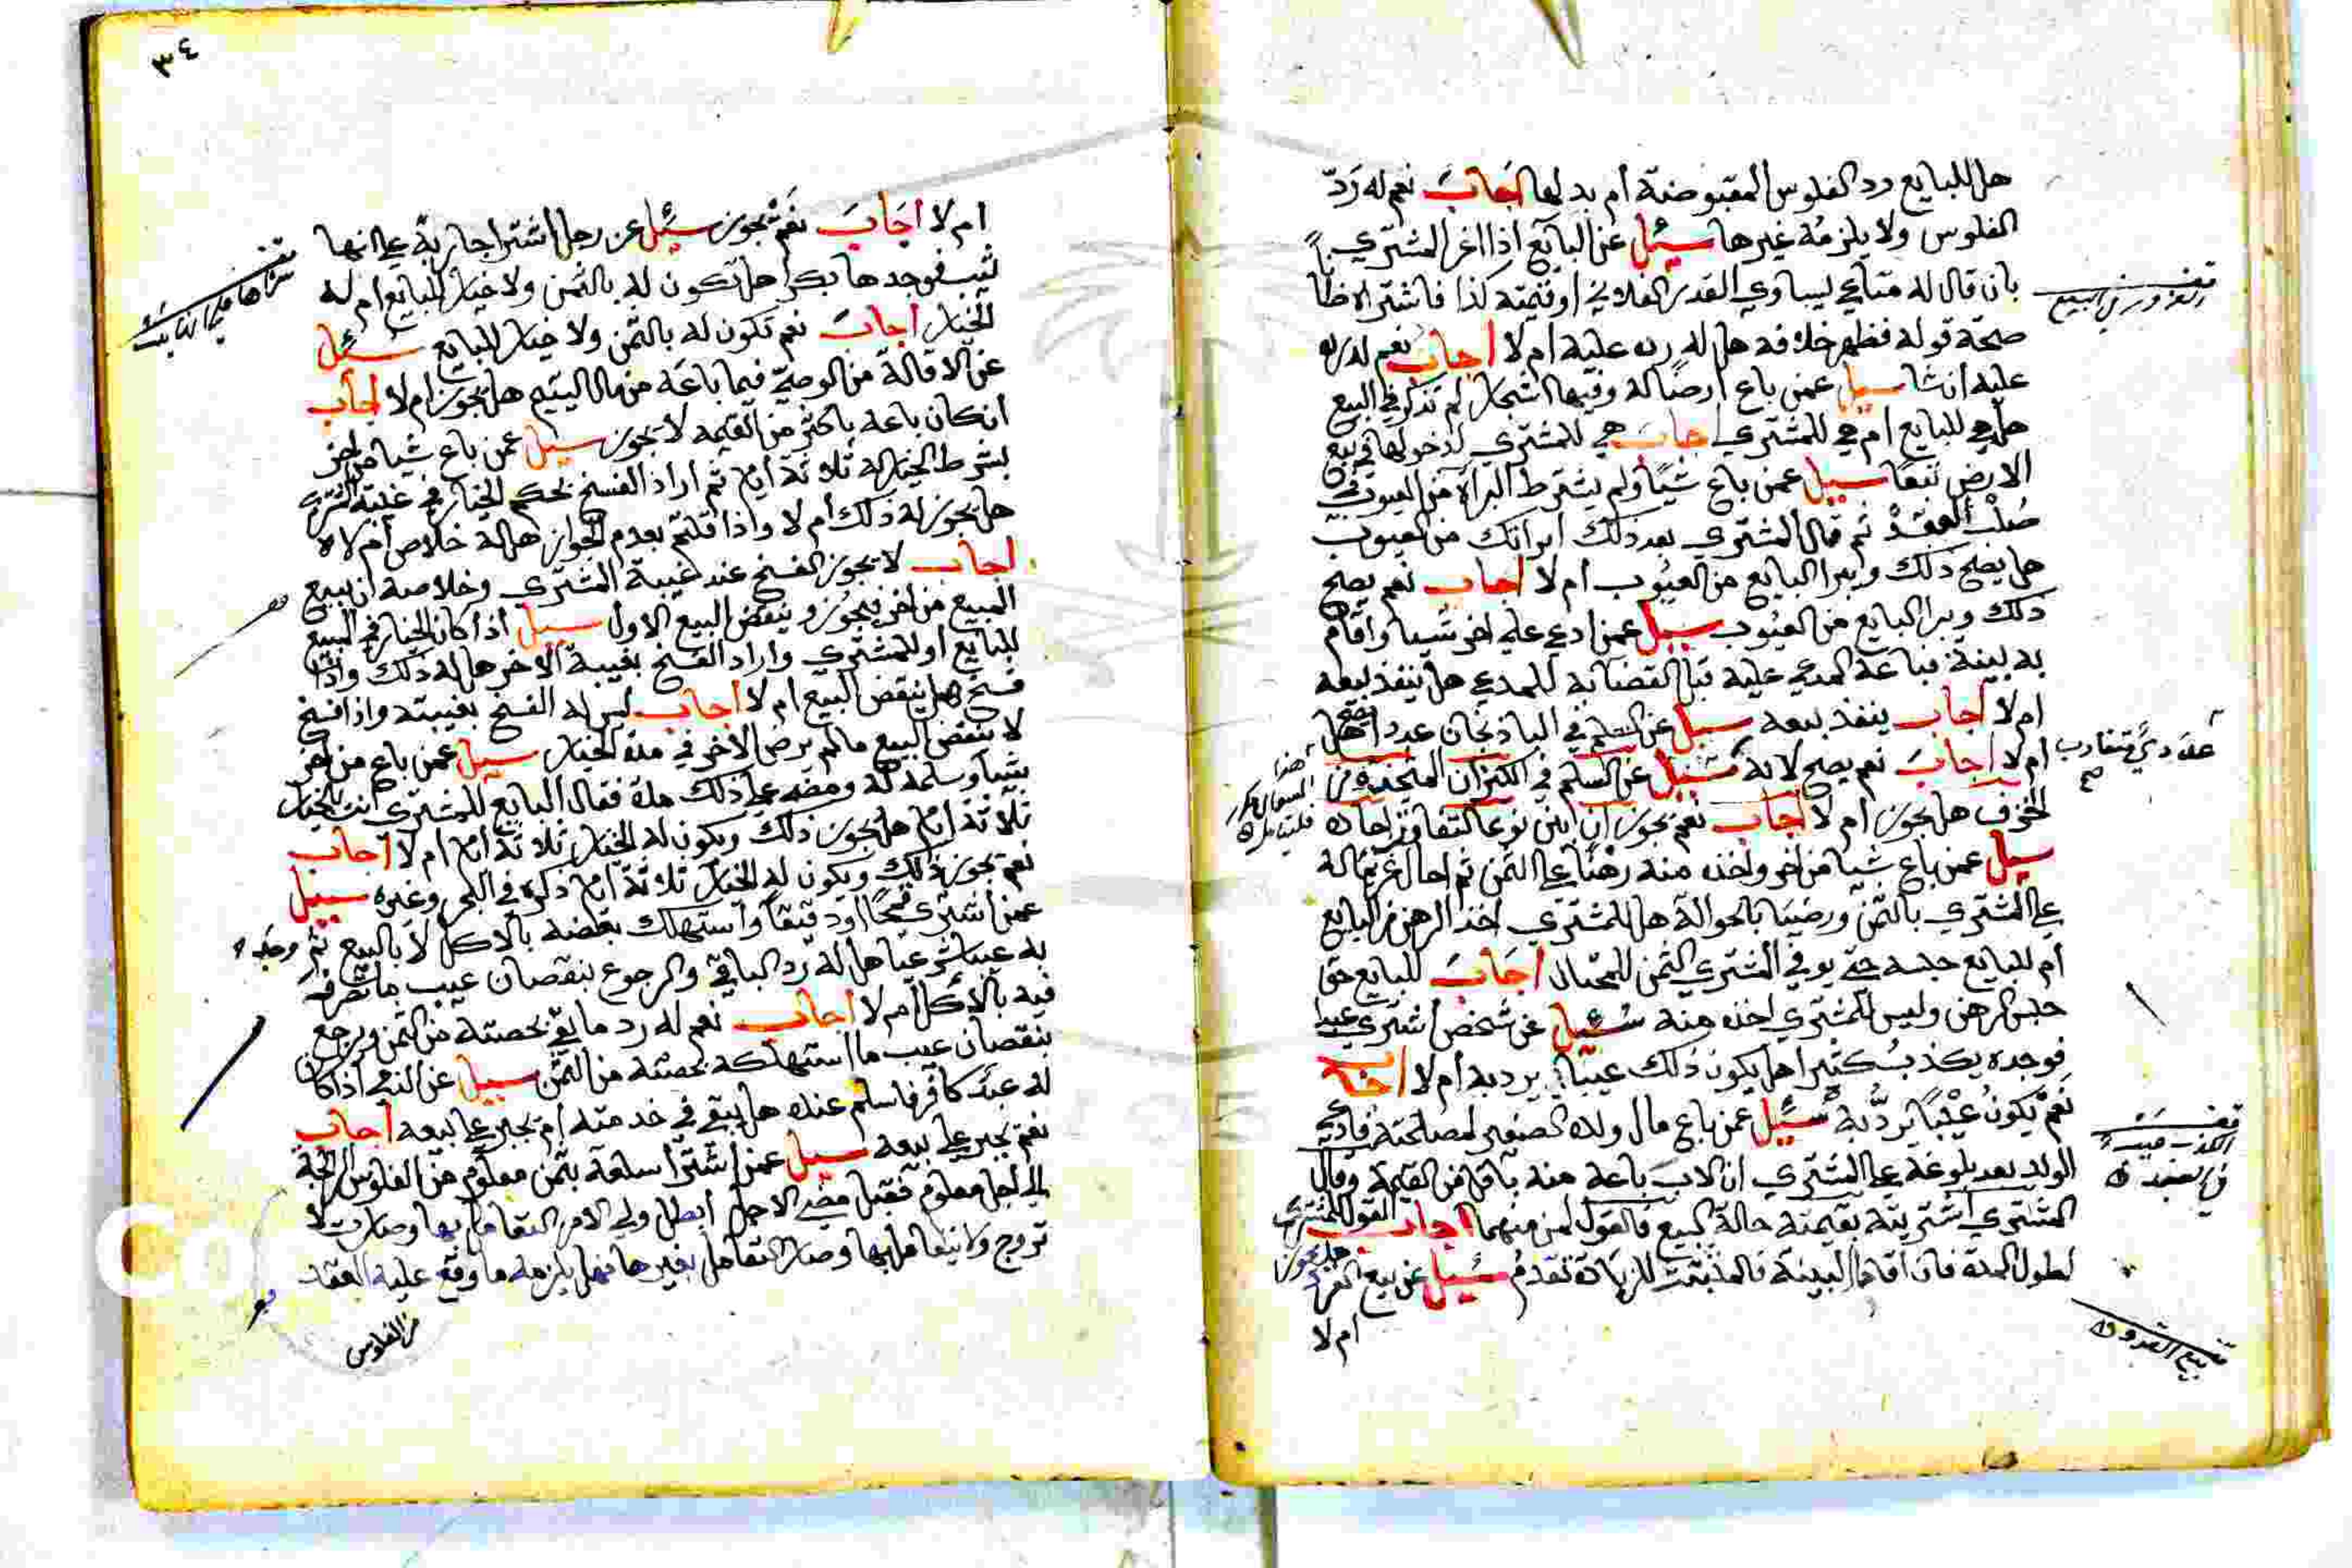 هل للبايع رد الفلوس المقبوضة أم بدلها أجاب نعم له رد
الفلوس ولا يلزمه غيرها سئل عن البايع اذا اغر المشتري
بان قال له متاعي يساوي القدر الفلاني او قيمته كذا فاشتراه ظانا
صحة قوله فظهر خلافه هل له رده عليه ام لا اجاب نعم له رده
عليه ان شا سيل عمن باع ارضا له وفيها اشجار لم تذكر في البيع
هل هي للبايع ام هي للمشتري اجاب هي للمشتري لدخولها في بيع
الارض تبعا سيل عمن باع شيا ولم يشترط البراة من العيوب في
صلب العقد ثم قال المشتري بعد ذلك ابراتك من العيوب
هل يصح ذلك ويبرا البايع من العيوب ام لا أجاب نعم يصح
ذلك ويبرا البايع من العيوب سيل عمن ادعي علي اخر شيا واقام
به بينة فباعه المدعي عليه قبل القضا به للمدعي هل ينفذ بيعه
ام لا أجاب ينفذ بيعه سيل عن السلم في الباذنجان عددا هل يصح
ام لا اجاب نعم يصح لانه سئيل عن السلم في الكيزان المتخذة من
الخزف هل يجوز ام لا أجاب نعم يجوز ان ابين نوعا لتفاوت احاده
سيل عمن باع شيا من اخر واخذ منه رهنا علي الثمن ثم احال غريما له
علي المشتري بالثمن ورضيا بالحوالة هل للمشتري اخذ الرهن من البايع
أم للبايع حبسه حتى يوفي المشتري الثمن للمحتال أجاب للبايع حق
حبس الرهن وليس للمشتري اخذه منه سئيل عن شخص اشتري عبدا
فوجده يكذب كثيرا هل يكون ذلك عيبا يرد به أم لا اجاب
نعم يكون عيبا يرد به سئيل عمن باع مال ولده الصغير لمصلحته فادعي
الولد بعد بلوغه علي المشتري ان الاب باعه منه باقل من القيمة وقال
المشتري اشتريته بقيمته حالة البيع فالقول لمن منهما أجاب القول للمشتري
لطول المدة فان اقاما البينة فالمثبت للزيادة تقدم سئيل عن بيع القرد هل يجوز
ام لا
الغرور في البيع
عددي متقارب صح
هذا السوال مكرر
الكذب عيب في العبد
بيع القرد
٣٤
ام لا أجاب نعم يجوز سئيل عن رجل اشترا جارية علي انها
ثيب فوجدها بكرا هل تكون له بالثمن ولا خيار للبايع ام له
الخيار أجاب نعم تكون له بالثمن ولا خيار للبايع سئيل
عن الاقالة من الوصي فيما باعه من مال اليتيم هل يجوز ام لا أجاب
ان كان باعه باكثر من القيمة لا يجوز سيل عمن باع شيا من اخر
بشرط الخيار له ثلاثة ايام ثم اراد الفسخ بحكم الخيار في غيبة المشتري
هل يجوز له ذلك أم لا واذا قلتم بعدم الجواز هل له خلاص أم لا
أجاب لا يجوز الفسخ عند غيبة المشتري وخلاصه ان يبيع
المبيع من اخر فيجوز وينقض البيع الاول سيل اذا كان الخيار في البيع
للبايع او للمشتري واراد الفسخ بغيبة الاخر هل له ذلك واذا
فسخ هل ينقض البيع ام لا أجاب ليس له الفسخ بغيبته واذا فسخ
لا ينقض البيع ما لم يرض الاخر في مدة الخيار سيل عمن باع من اخر
شيا وسلمه له ومضي علي ذلك مدة فقال البايع للمشتري انت بالخيار
ثلاثة ايام هل يجوز ذلك ويكون له الخيار ثلاثة ايام ام لا أجاب
نعم يجوز ذلك ويكون له الخيار ثلاثة ايام ذكره في البحر وغيره سيل
عمن اشتري قمحا او دقيقا واستهلك بعضه بالاكل لا بالبيع ثم وجد
به عيبا شرعيا هل له رد الباقي والرجوع بنقصان عيب ما تصرف
فيه بالاكل أم لا أجاب نعم له رد ما بقي بحصته من الثمن ويرجع
بنقصان عيب ما استهلكه بحصته من الثمن سيل عن الذمي اذا كان
له عبد كافر فاسلم عنده هل يبقي في خدمته ام يجبر علي بيعه أجاب
نعم يجبر علي بيعه سيل عمن اشترا سلعة بثمن معلوم من الفلوس الرايجة
الي اجل معلوم فقبل مضي الاجل أبطل ولي الامر التعامل بها وصارت لا
تروج ولا يتعامل بها وصار التعامل بغيرها فهل يلزمه ما وقع عليه العقد
من الفلوس